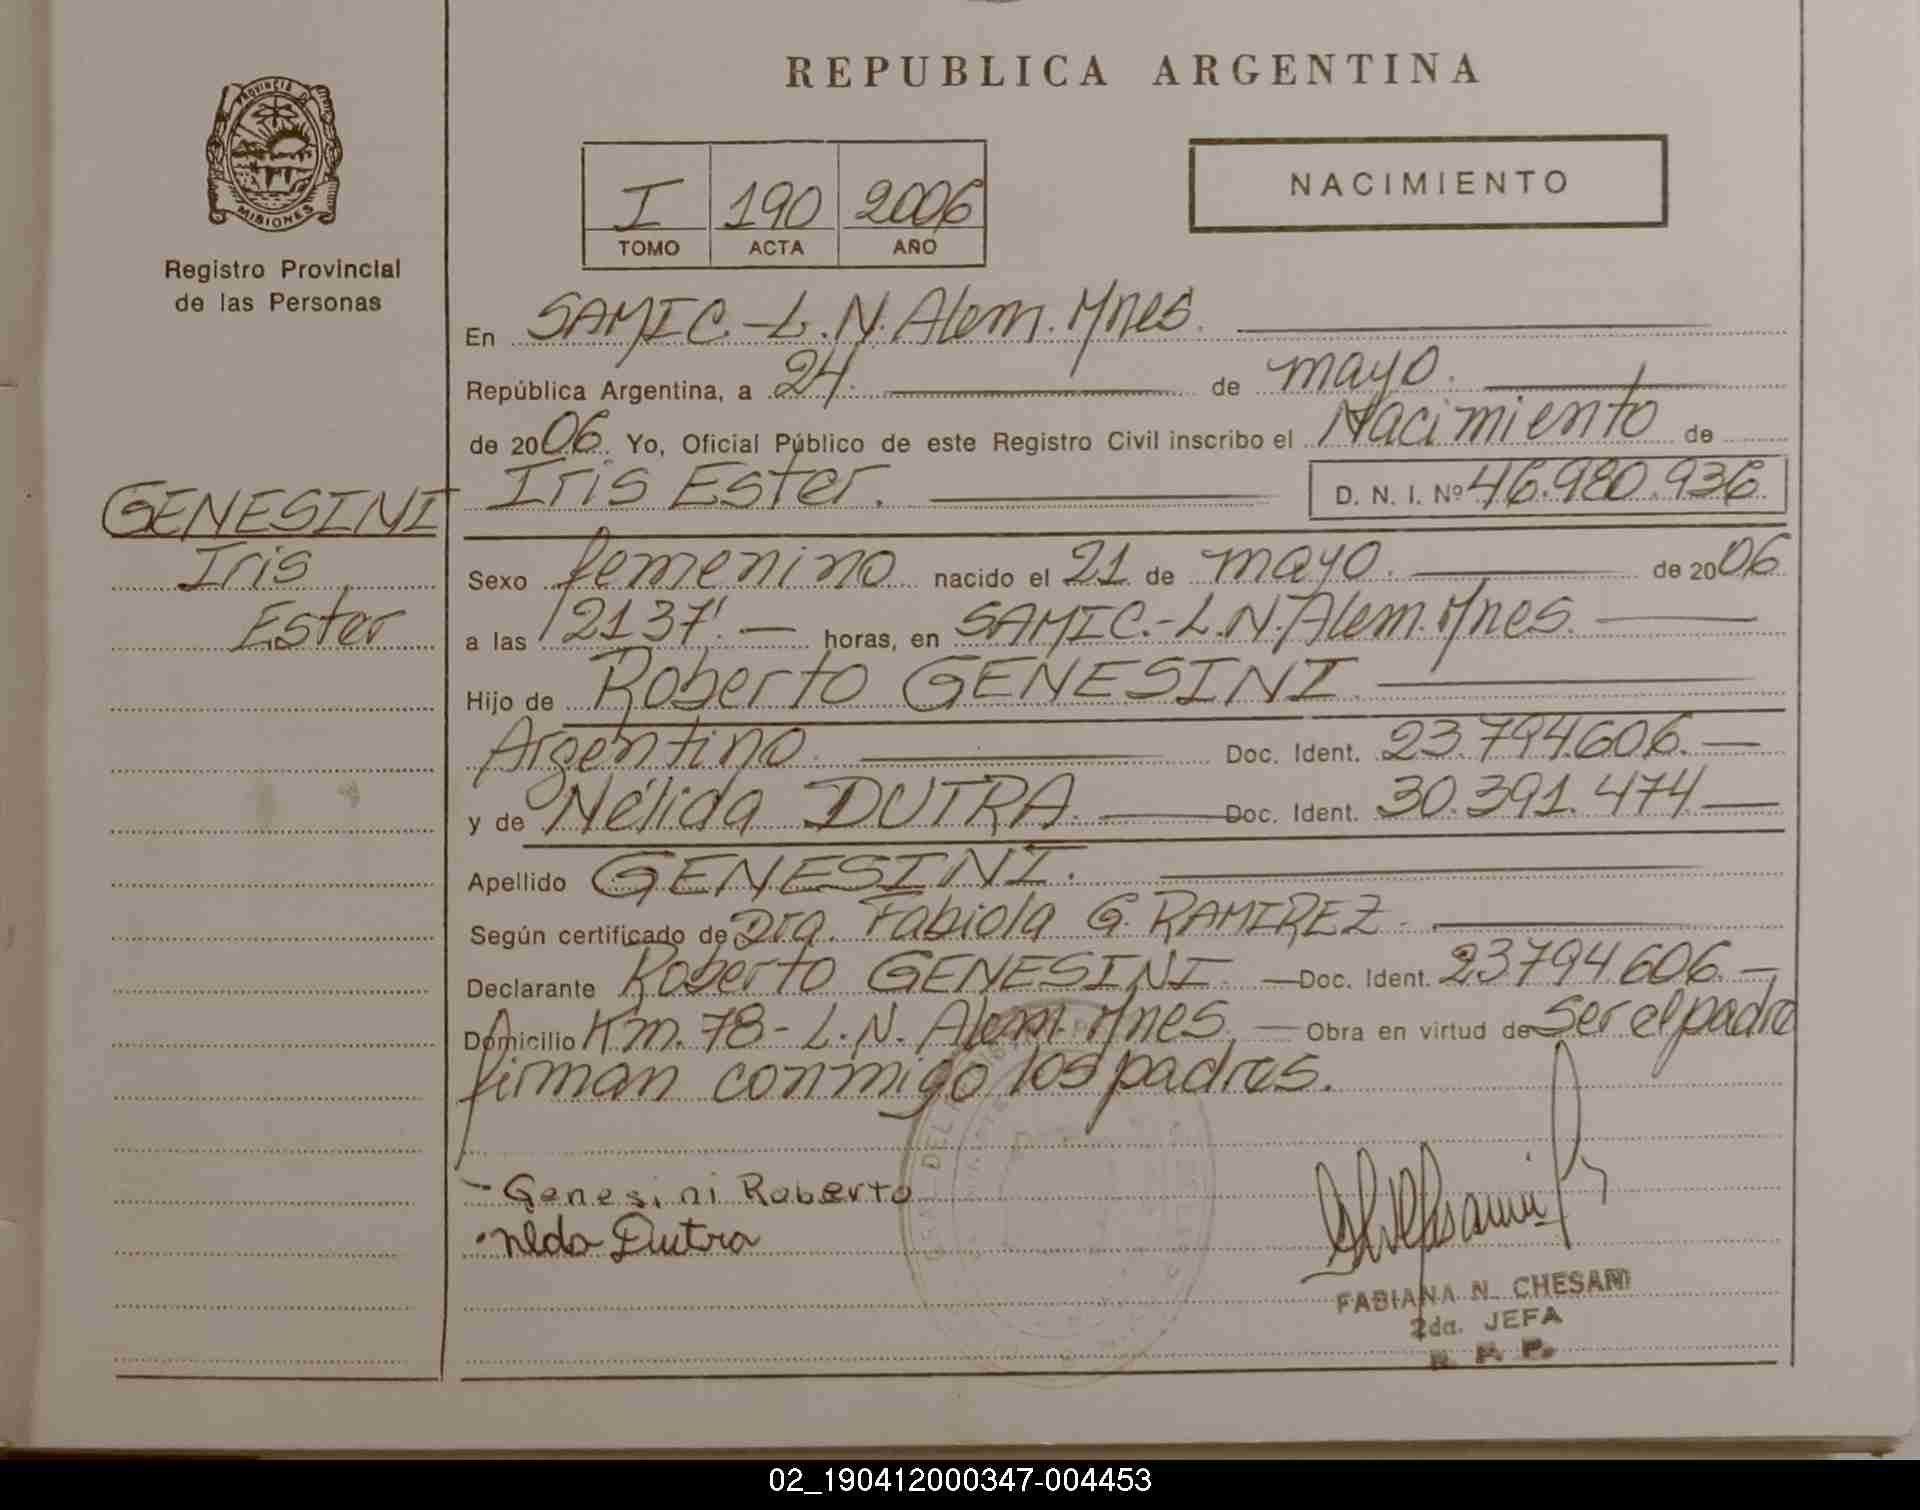 REPUBLICA ARGENTINA
PROVINCIA DE
MISIONES
Registro Provincial
de las Personas
I 190 2006
TOMO ACTA AÑO
NACIMIENTO
En SAMIC.-L.N.Alem.Mnes.
República Argentina, a 24. de mayo.
de 2006. Yo, Oficial Público de este Registro Civil inscribo el Nacimiento de
Iris Ester. D. N. I. Nº 46.980.936.
GENESINI
Iris
Ester
Sexo femenino nacido el 21 de mayo. de 2006
a las 2137'.— horas, en SAMIC.-L.N.Alem.Mnes.
Hijo de Roberto GENESINI.
Argentino. Doc. Ident. 23.794.606.—
y de Nélida DUTRA. Doc. Ident. 30.391.474—
Apellido GENESINI.
Según certificado de Dra. Fabiola G. RAMIREZ.
Declarante Roberto GENESINI. —Doc. Ident. 23794.606.—
Domicilio Km.78-L.N. Alem.Mnes. — Obra en virtud de Ser el padre
firman conmigo los padres.
- Genesini Roberto
Dutra
FABIANA N. CHESANI
2da. JEFA
R. P. P.
02_190412000347-004453